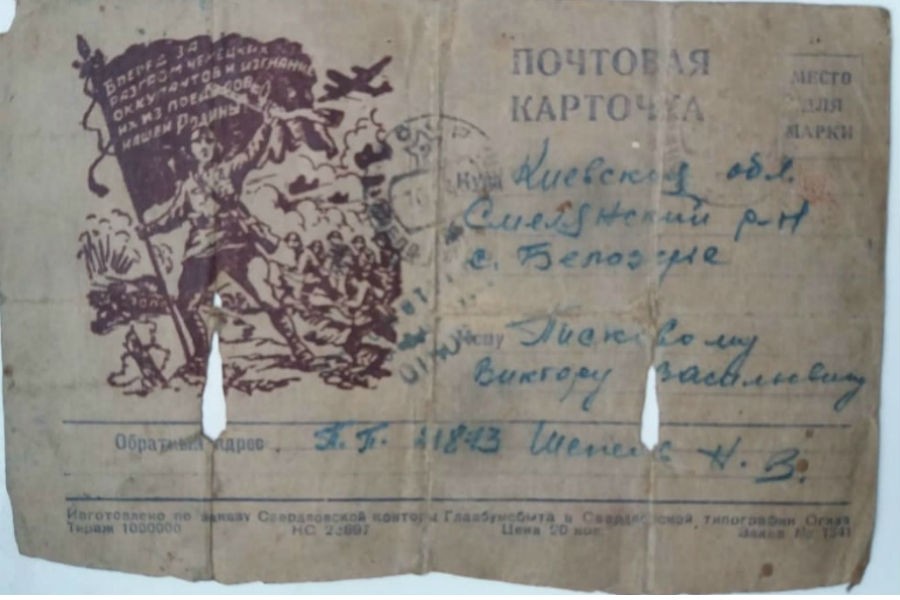 Вперед за
разгром немецких
оккупантов и изгнание
их из пределов
нашей Родины!
ПОЧТОВАЯ
КАРТОЧКА
МЕСТО
ДЛЯ
МАРКИ
Куда Киевская обл.
Смелянский р-н
с. Белозерье
Кому Писковому
Виктору Васильевичу
Обратный адрес П.П. 21873 Н. З.
Изготовлено по заказу Свердловской конторы Главбумсбыта в Свердловской типографии Огиза
Тираж 1000000 НС Цена 20 коп. Заказ № 1341